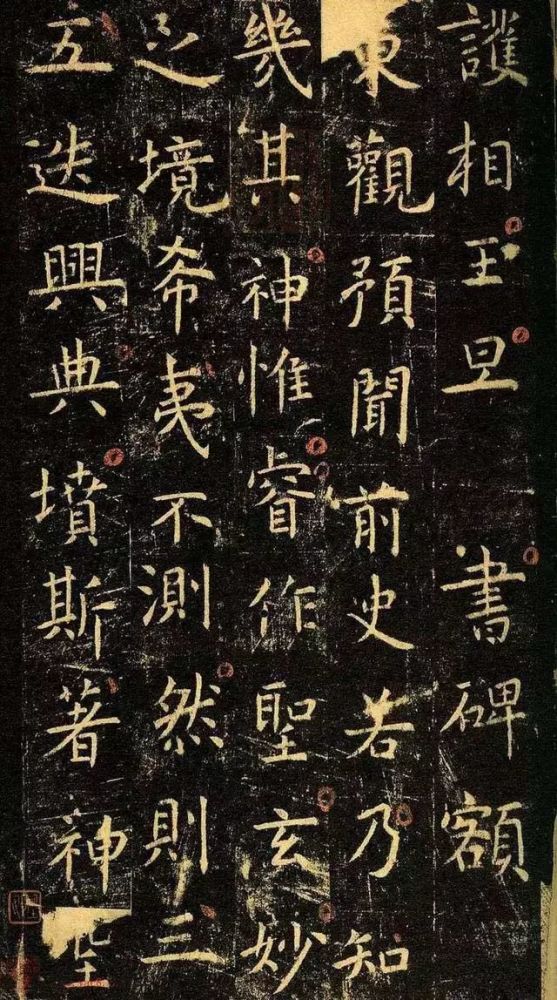 護相王旦書碑額
東觀預聞前史若乃知
幾其神惟睿作聖玄妙
之境希夷不測然則三
五迭興典墳斯著神聖